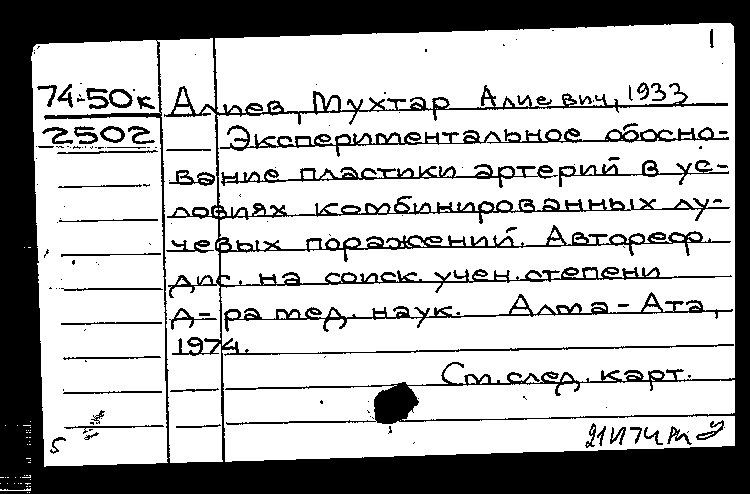 1
74-50к Алиев, Мухтар Алиевич, 1933
2502 Экспериментальное обосно-
вание пластики артерий в ус-
ловиях комбинированных лу-
чевых поражений. Автореф.
дис. на соиск. учен. степени
д-ра мед. наук. Алма-Ата,
1974.
См. след. карт.
5